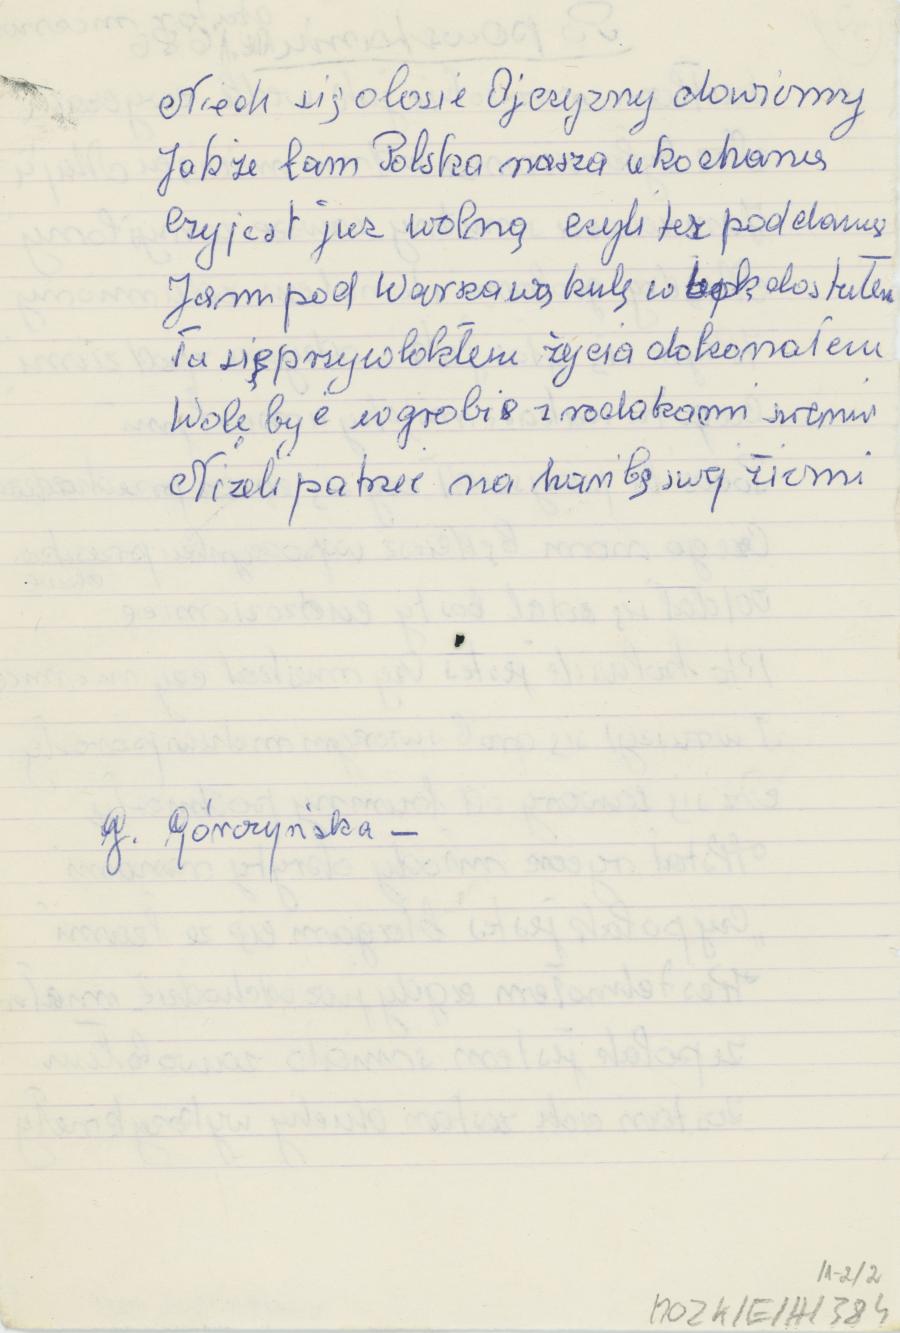 Niech się o losie Ojczyzny dowiemy
Jakże tam Polska nasza ukochaną
Czy jest już wolną czyli też poddaną
Jam pod Warszawą kulę w bok dostałem
Tu się przywlokłem życia dokonałem
Wolę być w grobie z rodakami swemi
Niżeli patrzeć na hańbę swej ziemi
G. Górczyńska —
11-2/2
MOZK/E/H/384